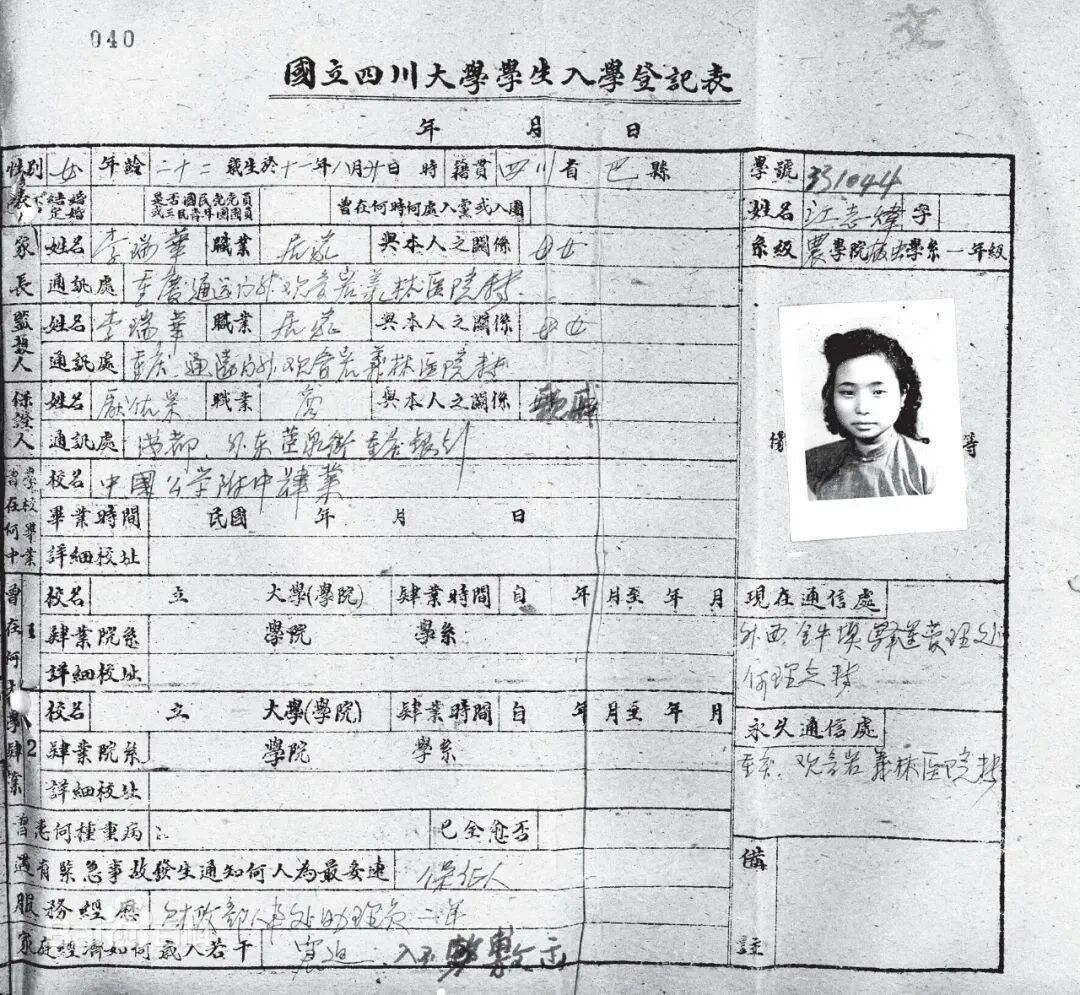 040
國立四川大學學生入學登記表
年 月 日
性別 女 年齡 二十二 歲生於十一年八月廿日 時 籍貫 四川 省 巴 縣
結婚 訂婚 是否國民党党員或三民青年團團員 曾在何時何處入黨或入團
家長 姓名 李瑞華 職業 與本人之關係 母女
通訊處 重慶通远门外观音岩义林医院转
監護人 姓名 李瑞華 職業 與本人之關係 母女
通訊處 观音岩义林医院转
保證人 姓名 職業 與本人之關係
通訊處 成都
曾在何中學校畢業 校名 中國公学附中肄業
畢業時間 民國 年 月 日
詳細校址
曾在何大學肄業
1 校名 立 大學(學院) 肄業時間 自 年 月至 年 月
肄業院系 學院 學系
詳細校址
2 校名 立 大學(學院) 肄業時間 自 年 月至 年 月
肄業院系 學院 學系
詳細校址
曾患何種重病 已全愈否
遇有緊急事故發生通知何人為最妥速 保証人
服務經歷 二年
家庭經濟如何歲入若干 窘迫 入不敷出
學號 331044
姓名 江志煒 字
系級 農學院 一年級
等
現在通信處
外西金牛壩
永久通信處
观音岩义林医院转
備註